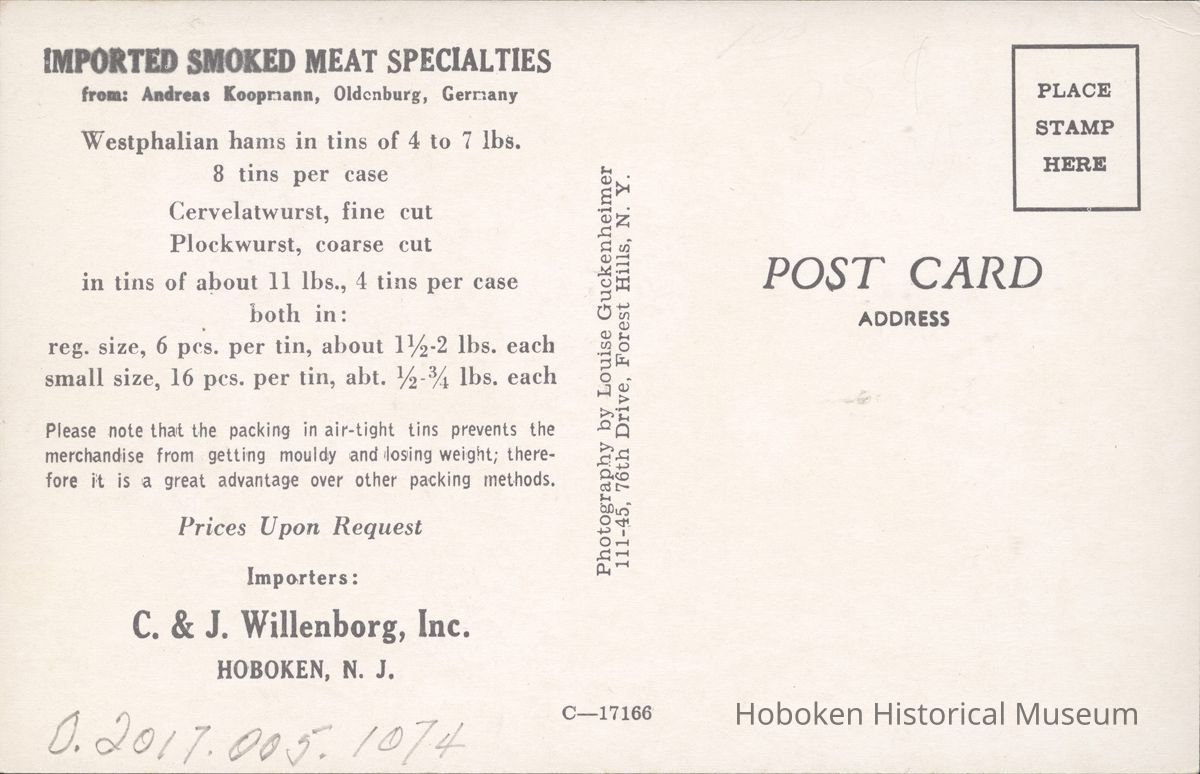 IMPORTED SMOKED MEAT SPECIALTIES
from: Andreas Koopmann, Oldenburg, Germany
Westphalian hams in tins of 4 to 7 lbs.
8 tins per case
Cervelatwurst, fine cut
Plockwurst, coarse cut
in tins of about 11 lbs., 4 tins per case
both in:
reg. size, 6 pcs. per tin, about 1½-2 lbs. each
small size, 16 pcs. per tin, abt. ½-¾ lbs. each
Please note that the packing in air-tight tins prevents the
merchandise from getting mouldy and losing weight; there-
fore it is a great advantage over other packing methods.
Prices Upon Request
Importers:
C. & J. Willenborg, Inc.
HOBOKEN, N. J.
0.2017.005.1074
Photography by Louise Guckenheimer
111-45, 76th Drive, Forest Hills, N. Y.
C—17166
PLACE
STAMP
HERE
POST CARD
ADDRESS
Hoboken Historical Museum